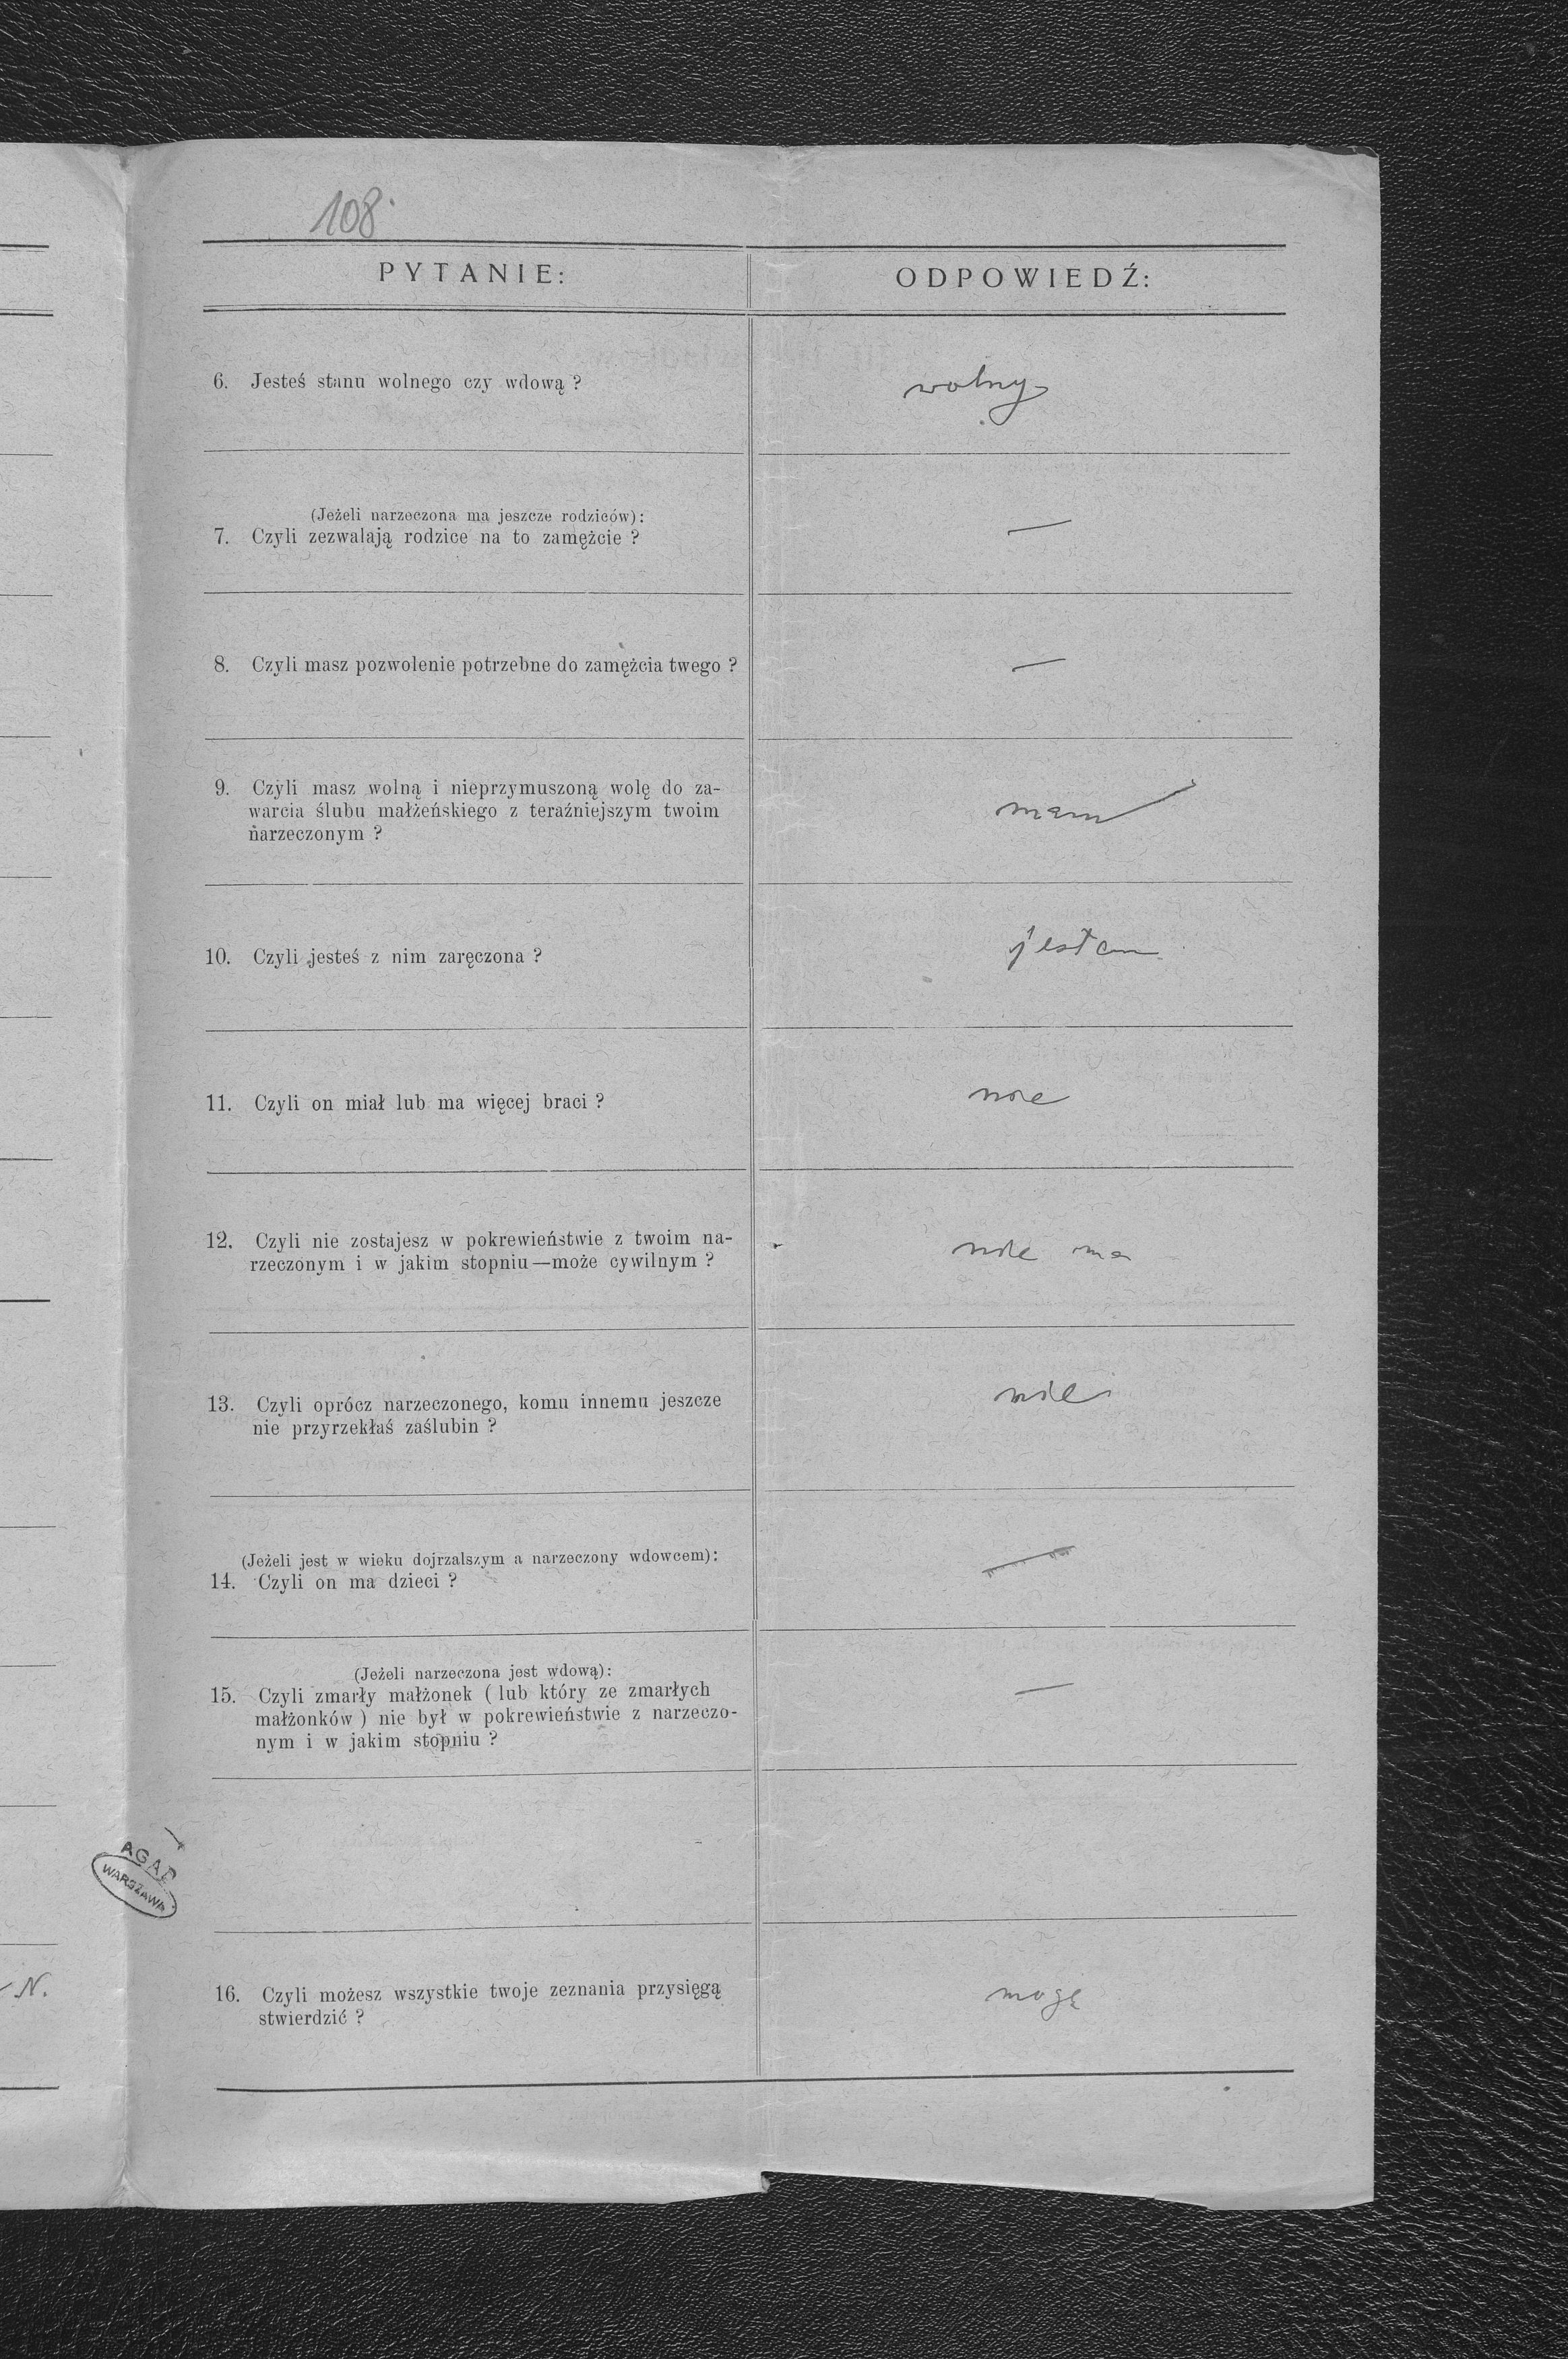 108
PYTANIE:
ODPOWIEDŹ:
6. Jesteś stanu wolnego czy wdową ?
wolny
(Jeżeli narzeczona ma jeszcze rodziców):
7. Czyli zezwalają rodzice na to zamężcie ?
—
8. Czyli masz pozwolenie potrzebne do zamężcia twego ?
—
9. Czyli masz wolną i nieprzymuszoną wolę do za-
warcia ślubu małżeńskiego z teraźniejszym twoim
narzeczonym ?
mam
10. Czyli jesteś z nim zaręczona ?
jestem
11. Czyli on miał lub ma więcej braci ?
nie
12. Czyli nie zostajesz w pokrewieństwie z twoim na-
rzeczonym i w jakim stopniu—może cywilnym ?
nie ma
13. Czyli oprócz narzeczonego, komu innemu jeszcze
nie przyrzekłaś zaślubin ?
nie
(Jeżeli jest w wieku dojrzalszym a narzeczony wdowcem):
14. Czyli on ma dzieci ?
—
(Jeżeli narzeczona jest wdową):
15. Czyli zmarły małżonek ( lub który ze zmarłych
małżonków ) nie był w pokrewieństwie z narzeczo-
nym i w jakim stopniu ?
—
AGAD
WARSZAWA
N.
16. Czyli możesz wszystkie twoje zeznania przysięgą
stwierdzić ?
mogę